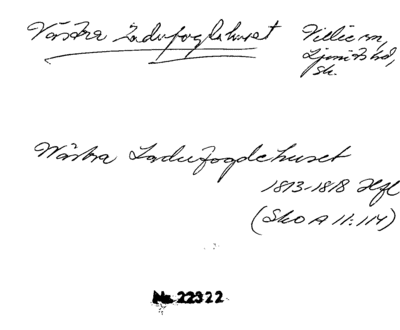 Västra Ladufogdehuset Villie sn,
Ljunits hd,
Sk.
Wästra Ladufogdehuset
1813-1818 Hfl
(Sko A II:1M)
No 22322